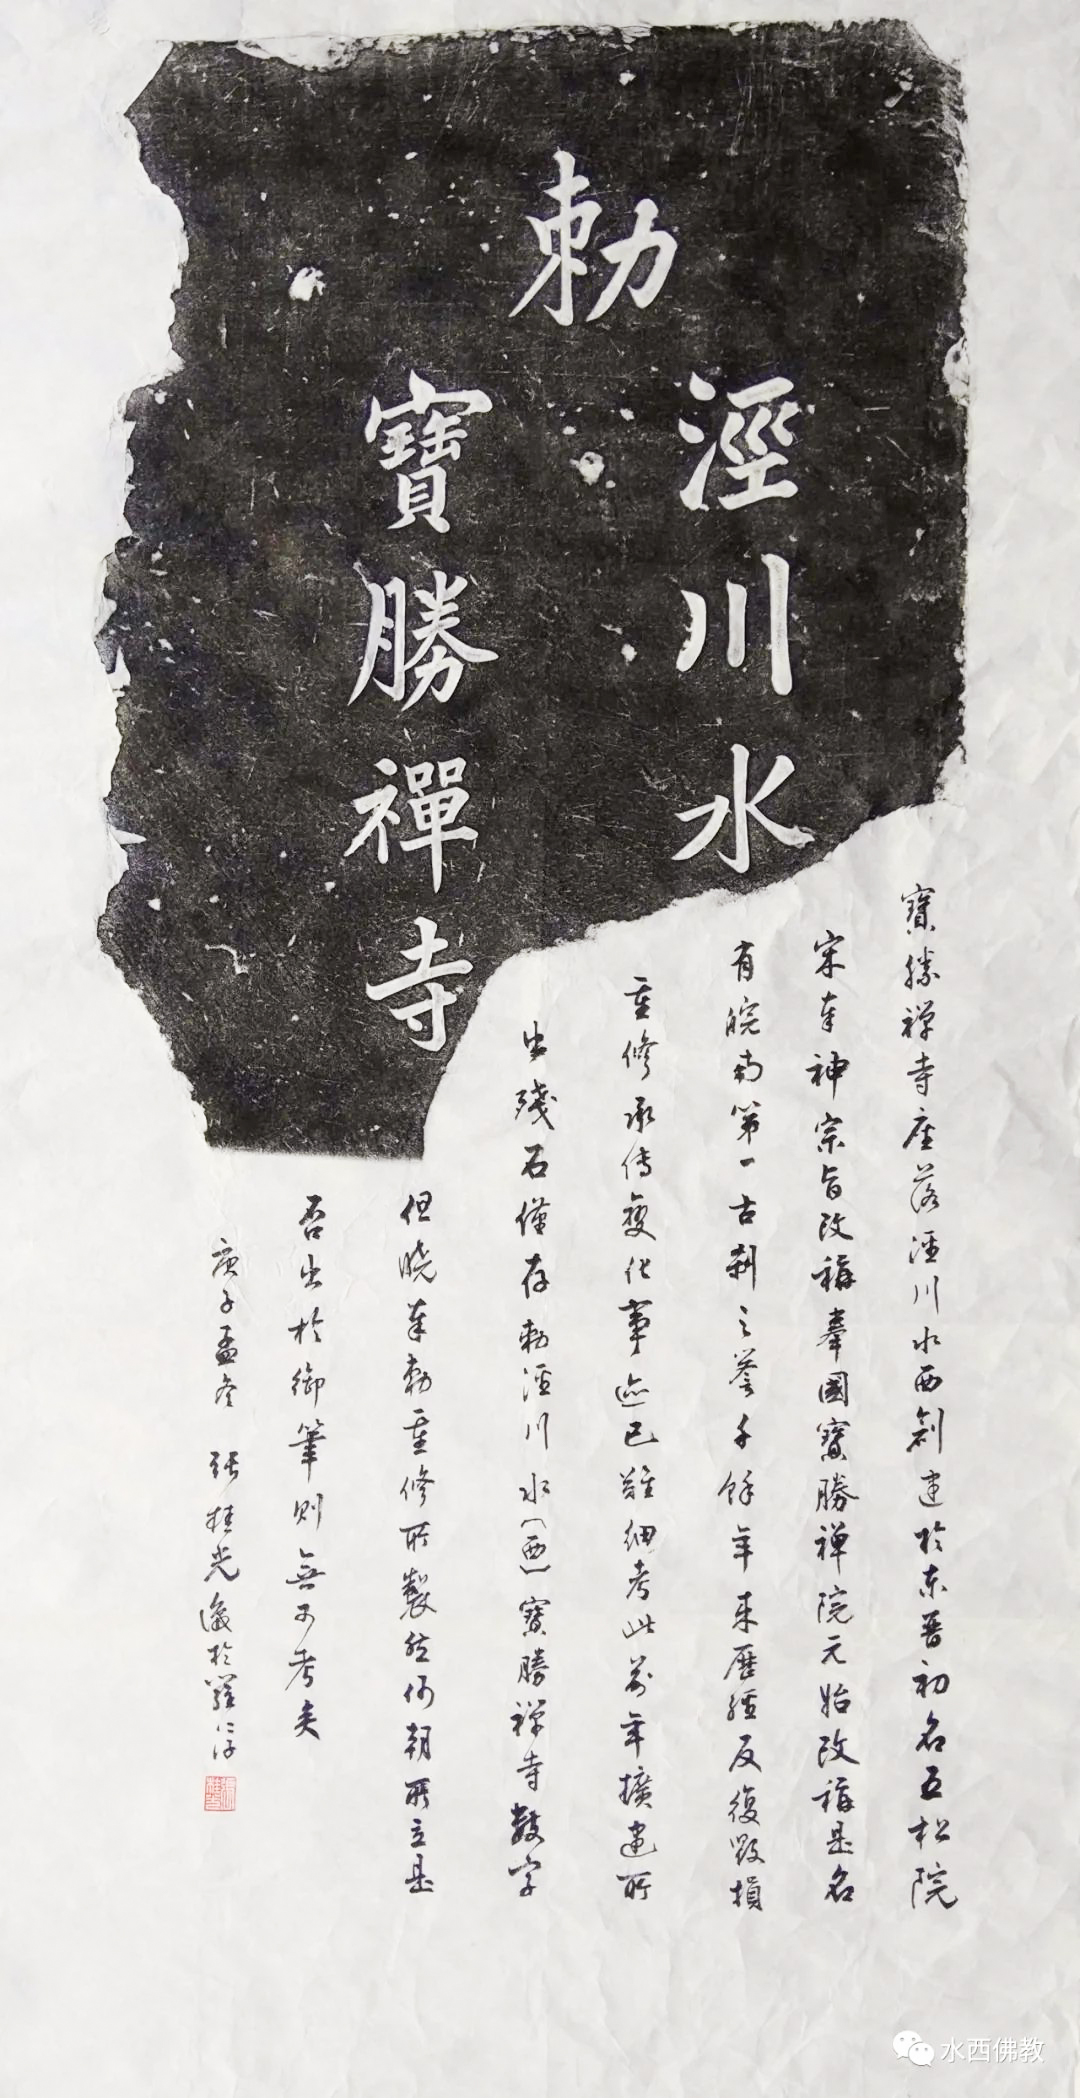 勅
涇川水
寶勝禪寺
寶勝禅寺座落涇川水西創建於东晋初名五松院
宋奉神宗旨改稱奉國寶勝禅院元始改稱是名
有皖南第一古刹之誉千餘年来歷經反復毀損
重修承传变化事迹已難细考此前年擴建所
出殘石僅存勅涇川水(西)寶勝禅寺數字
但晓奉勅重修所製然何朝所立是
否出於御筆則無可考矣
庚子孟冬 張桂光識於羅浮
水西佛教